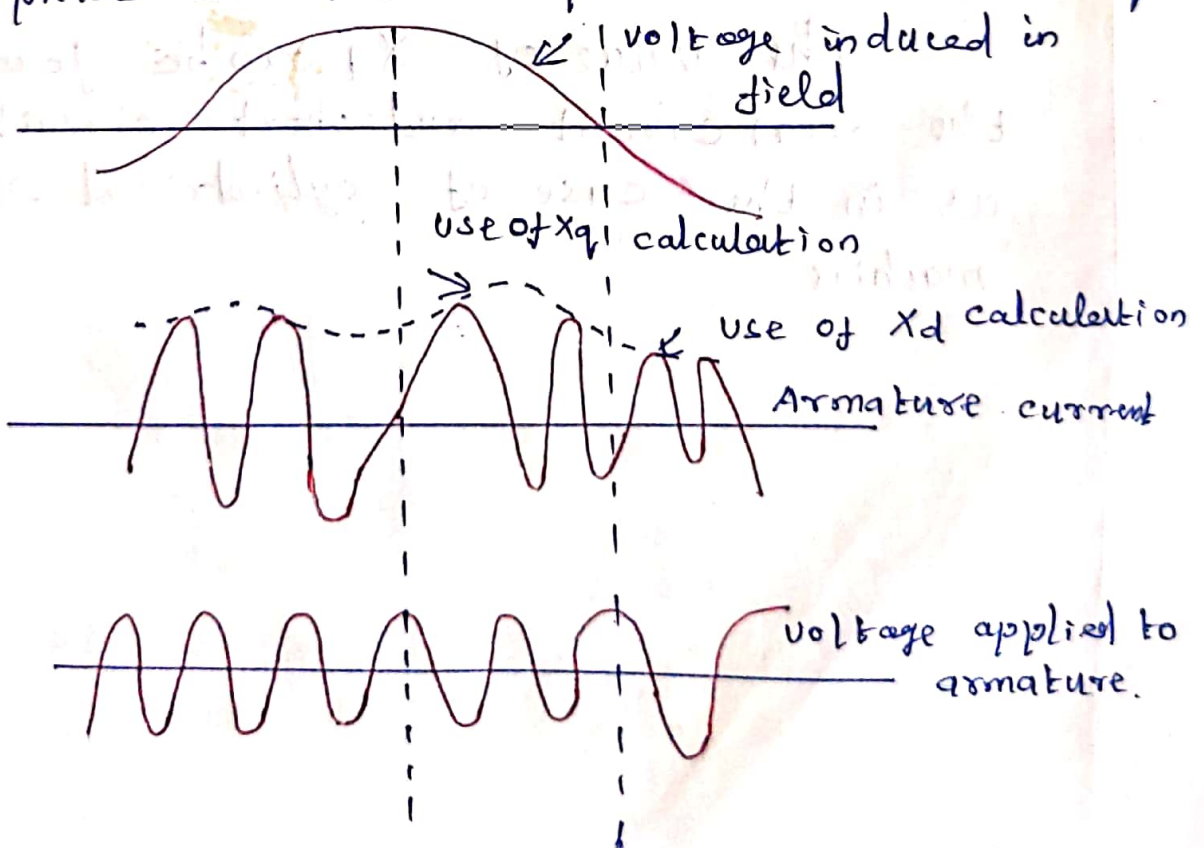 voltage induced in
field
use of Xq calculation
use of Xd calculation
Armature current
voltage applied to
armature.